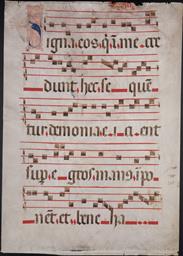 Signa eos, q̃ i me cre
dunt, hec se quẽ
tur: demonia e i ci ent
sup. e gros man9 īpo
nẽt, et bene ha